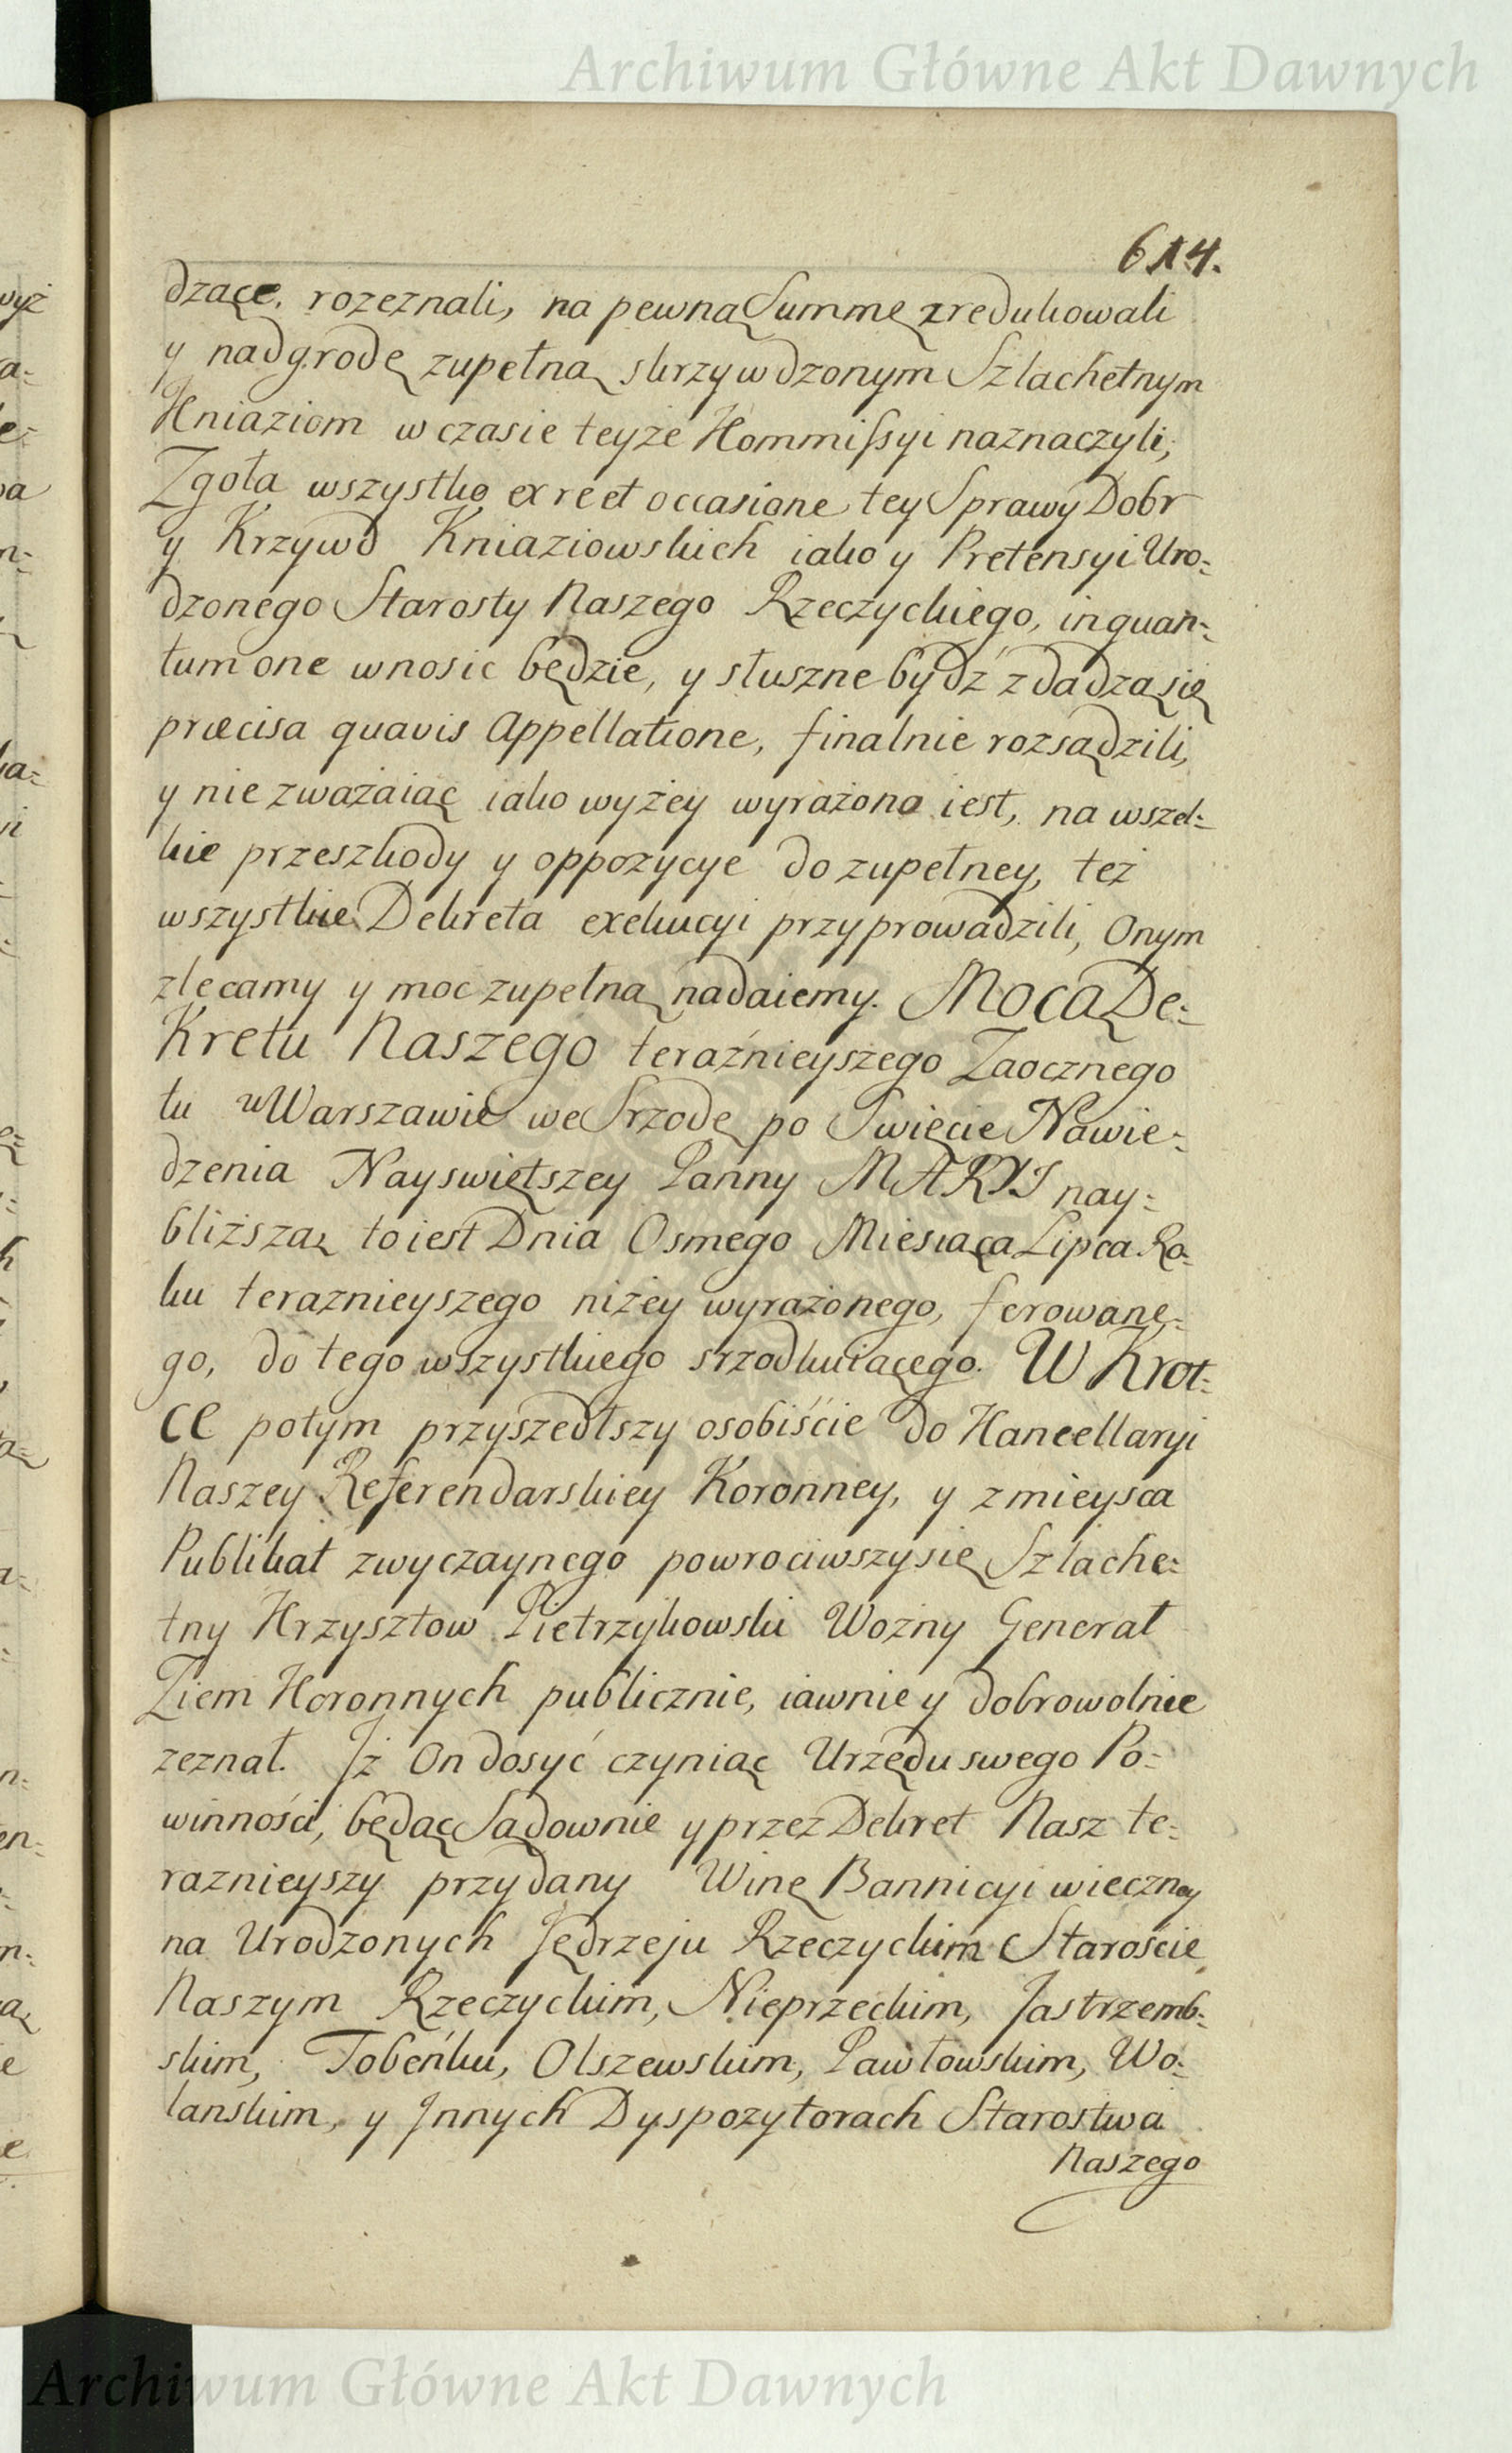 Archiwum Główne Akt Dawnych
614.
dzące, rozeznali, na pewną Summę zredukowali
y nadgrodę zupełną skrzywdzonym Szlachetnym
Kniaziom w czasie teyże Kommissyi naznaczyli,
Zgoła wszystko ex re et occasione tey Sprawy Dobr
y Krzywd Kniaziowskich iako y Pretensyi Uro-
dzonego Starosty Naszego Rzeczyckiego, inquan-
tum one wnosic będzie, y słuszne bydź zdadzą się
præcisa quavis Appellatione, finalnie rozsądzili,
y nie zważaiąc iako wyżey wyrażono iest, na wszel-
kie przeszkody y oppozycye do zupełney, też
wszystkie Dekreta exekucyi przyprowadzili, Onym
zlecamy y moc zupełną nadaiemy. Mocą De-
Kretu Naszego teraźnieyszego Zaocznego
tu w Warszawie we Srzodę po Swięcie Nawie-
dzenia Nayswiętszey Panny MARYI nay-
bliższą to iest Dnia Osmego Miesiąca Lipca Ro-
ku teraznieyszego niżey wyrażonego, ferowane-
go, do tego wszystkiego srzodkuiącego. W Krot-
ce potym przyszedłszy osobiście do Kancellaryi
Naszey Referendarskiey Koronney, y z mieysca
Publikat zwyczaynego powrociwszy się Szlache-
tny Krzysztow Pietrzykowski Wozny Generał
Ziem Koronnych publicznie, iawnie y dobrowolnie
zeznał. Iż On dosyć czyniąc Urzędu swego Po-
winności, będąc Sądownie y przez Dekret Nasz te-
raznieyszy przydany Winę Bannicyi wieczney
na Urodzonych Jędrzeju Rzeczyckim Starośćie
Naszym Rzeczyckim, Nieprzeckim, Jastrzemb-
skim, Tobeńku, Olszewskim, Pawłowskim, Wo-
lanskim, y Innych Dyspozytorach Starostwa
Naszego
Archiwum Główne Akt Dawnych